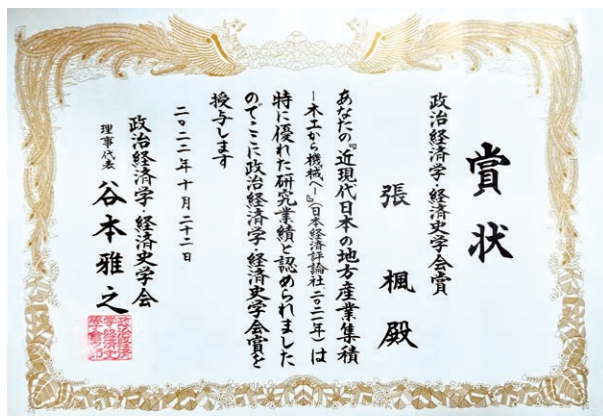 賞状
張楓殿
政治経済学・経済史学会賞
あなたの『近現代日本の地方産業集積
―木工から機械へ―』(日本経済評論社、二〇二一年)は
特に優れた研究業績と認められました
のでここに政治経済学・経済史学会賞を
授与します
二〇二二年十月二十二日
政治経済学・経済史学会
理事代表 谷本雅之